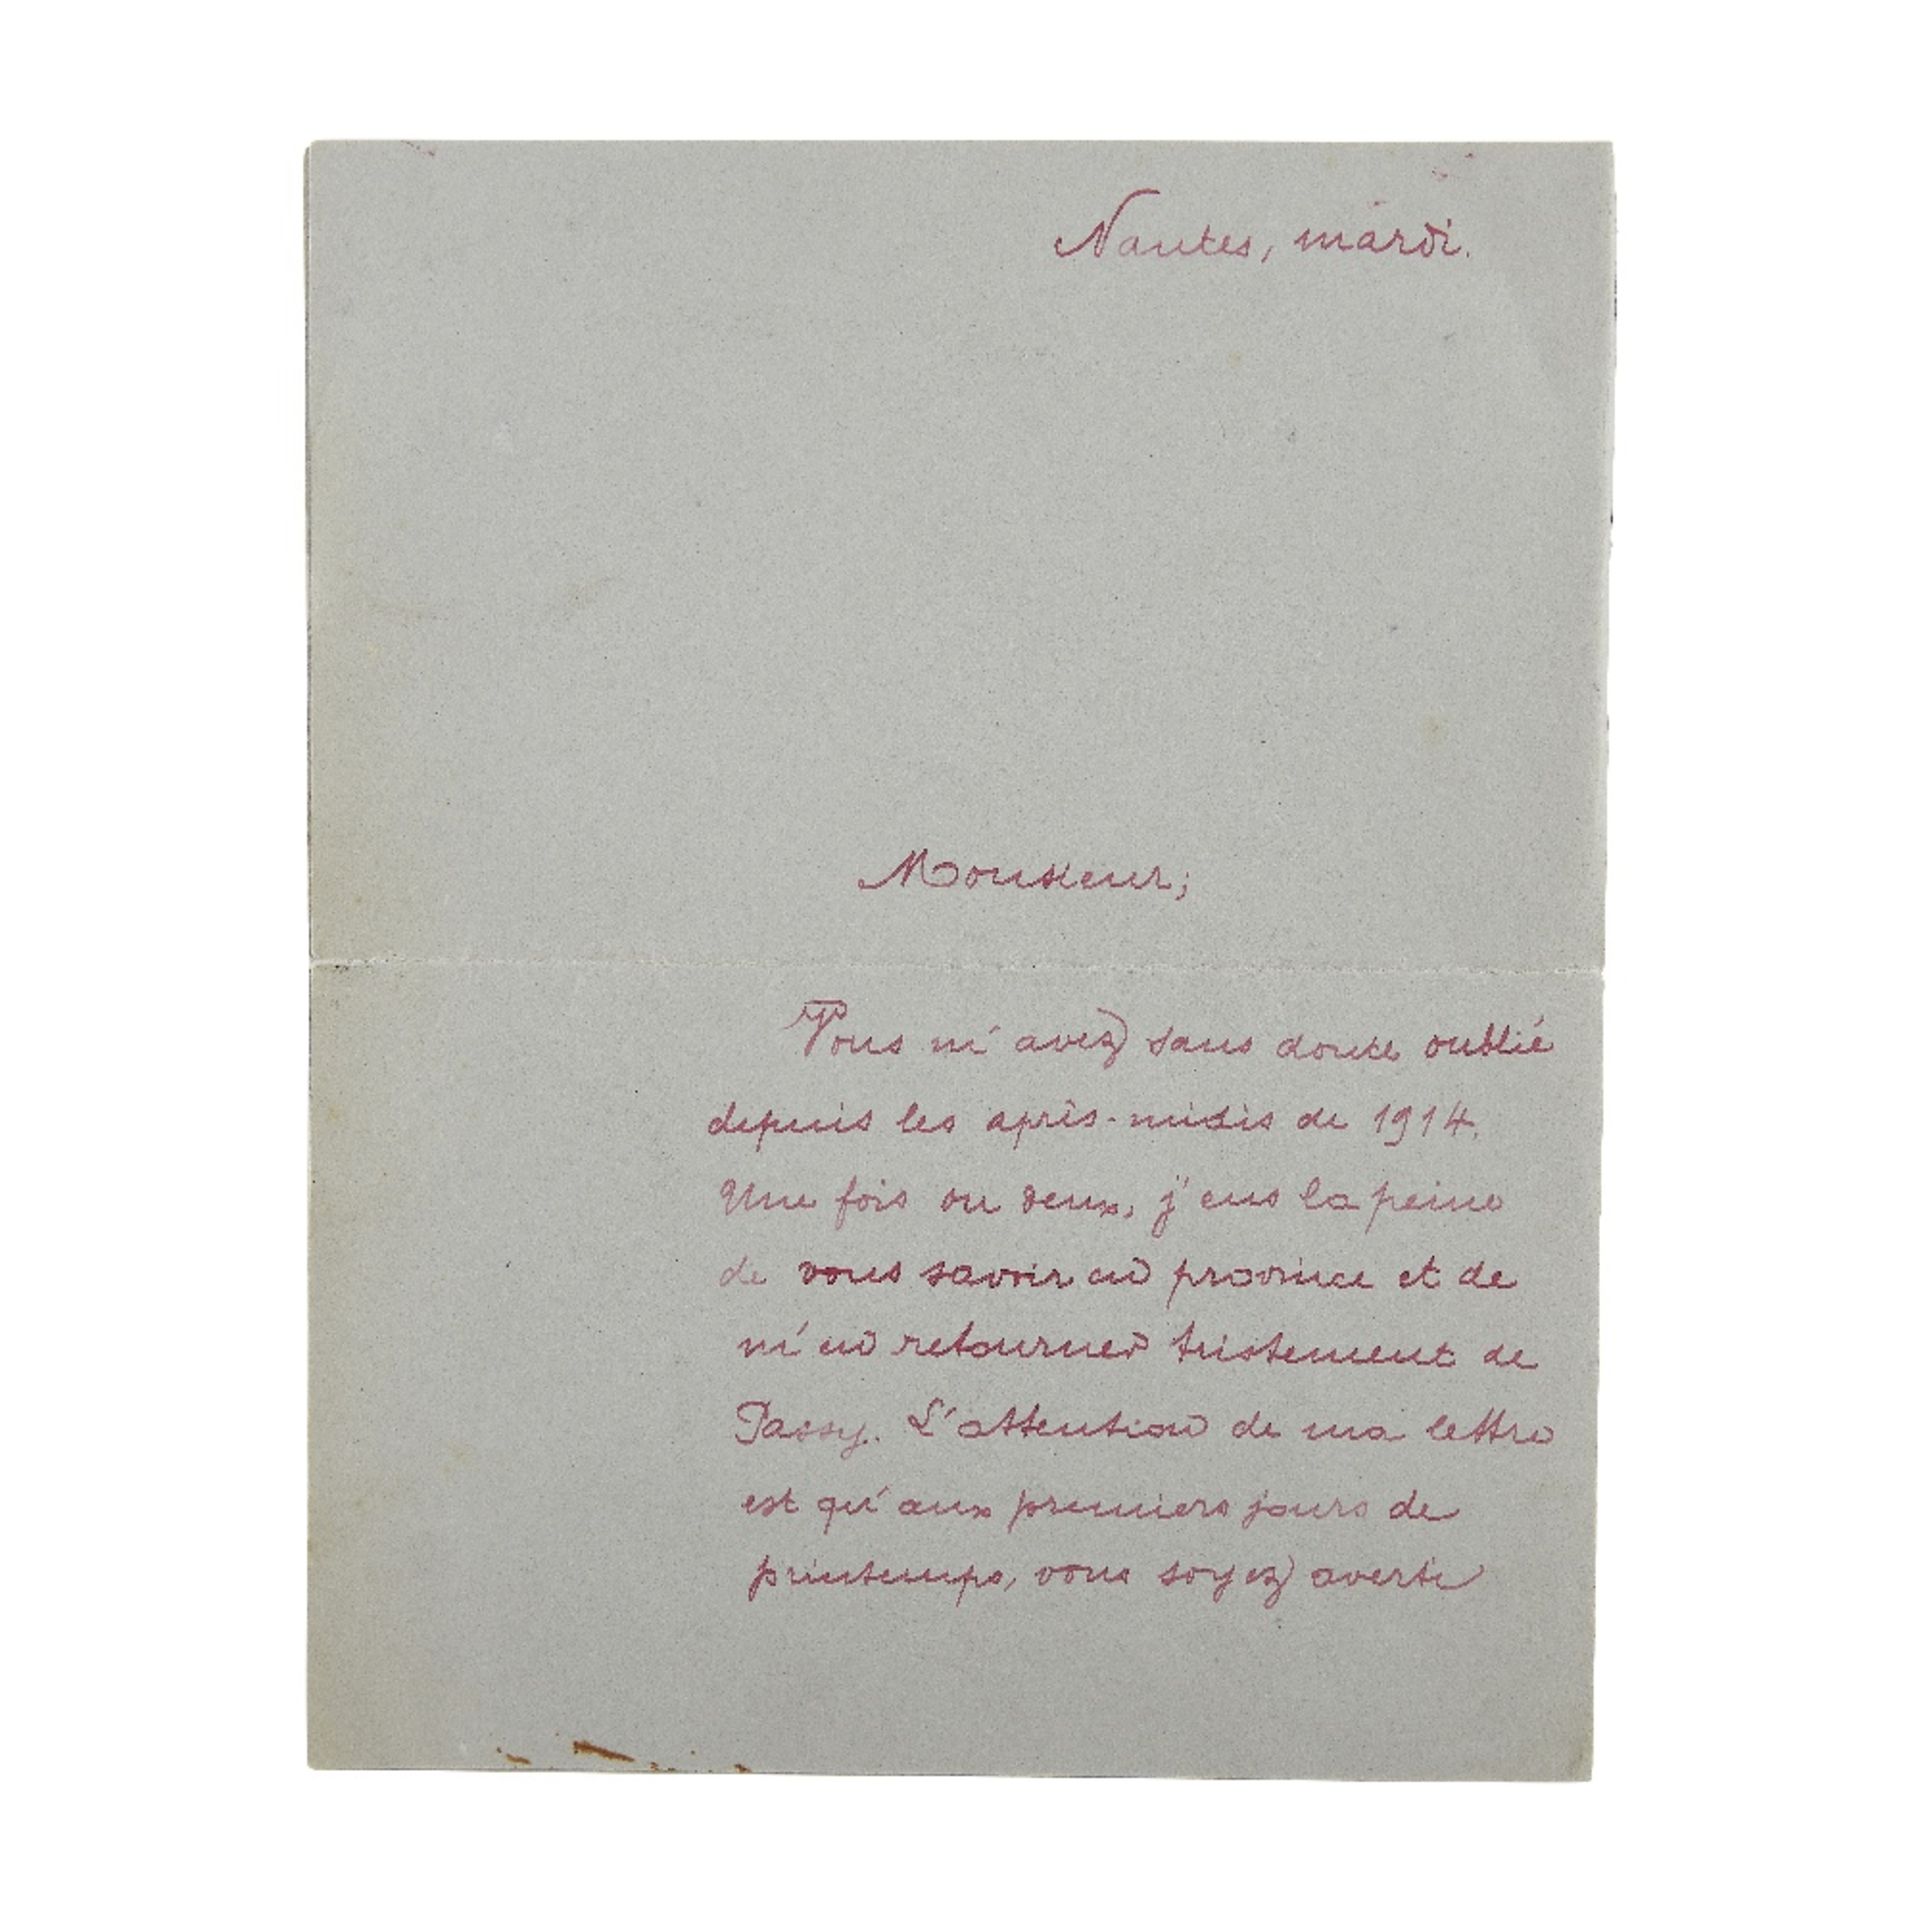 Nantes, mardi.
Monsieur;
Vous m'avez sans doute oublié
depuis les après-midis de 1914.
Une fois ou deux, j'eus la peine
de vous savoir en province et de
m'en retourner tristement de
Passy. L'attention de ma lettre
est qu'aux premiers jours de
printemps, vous soyez averti